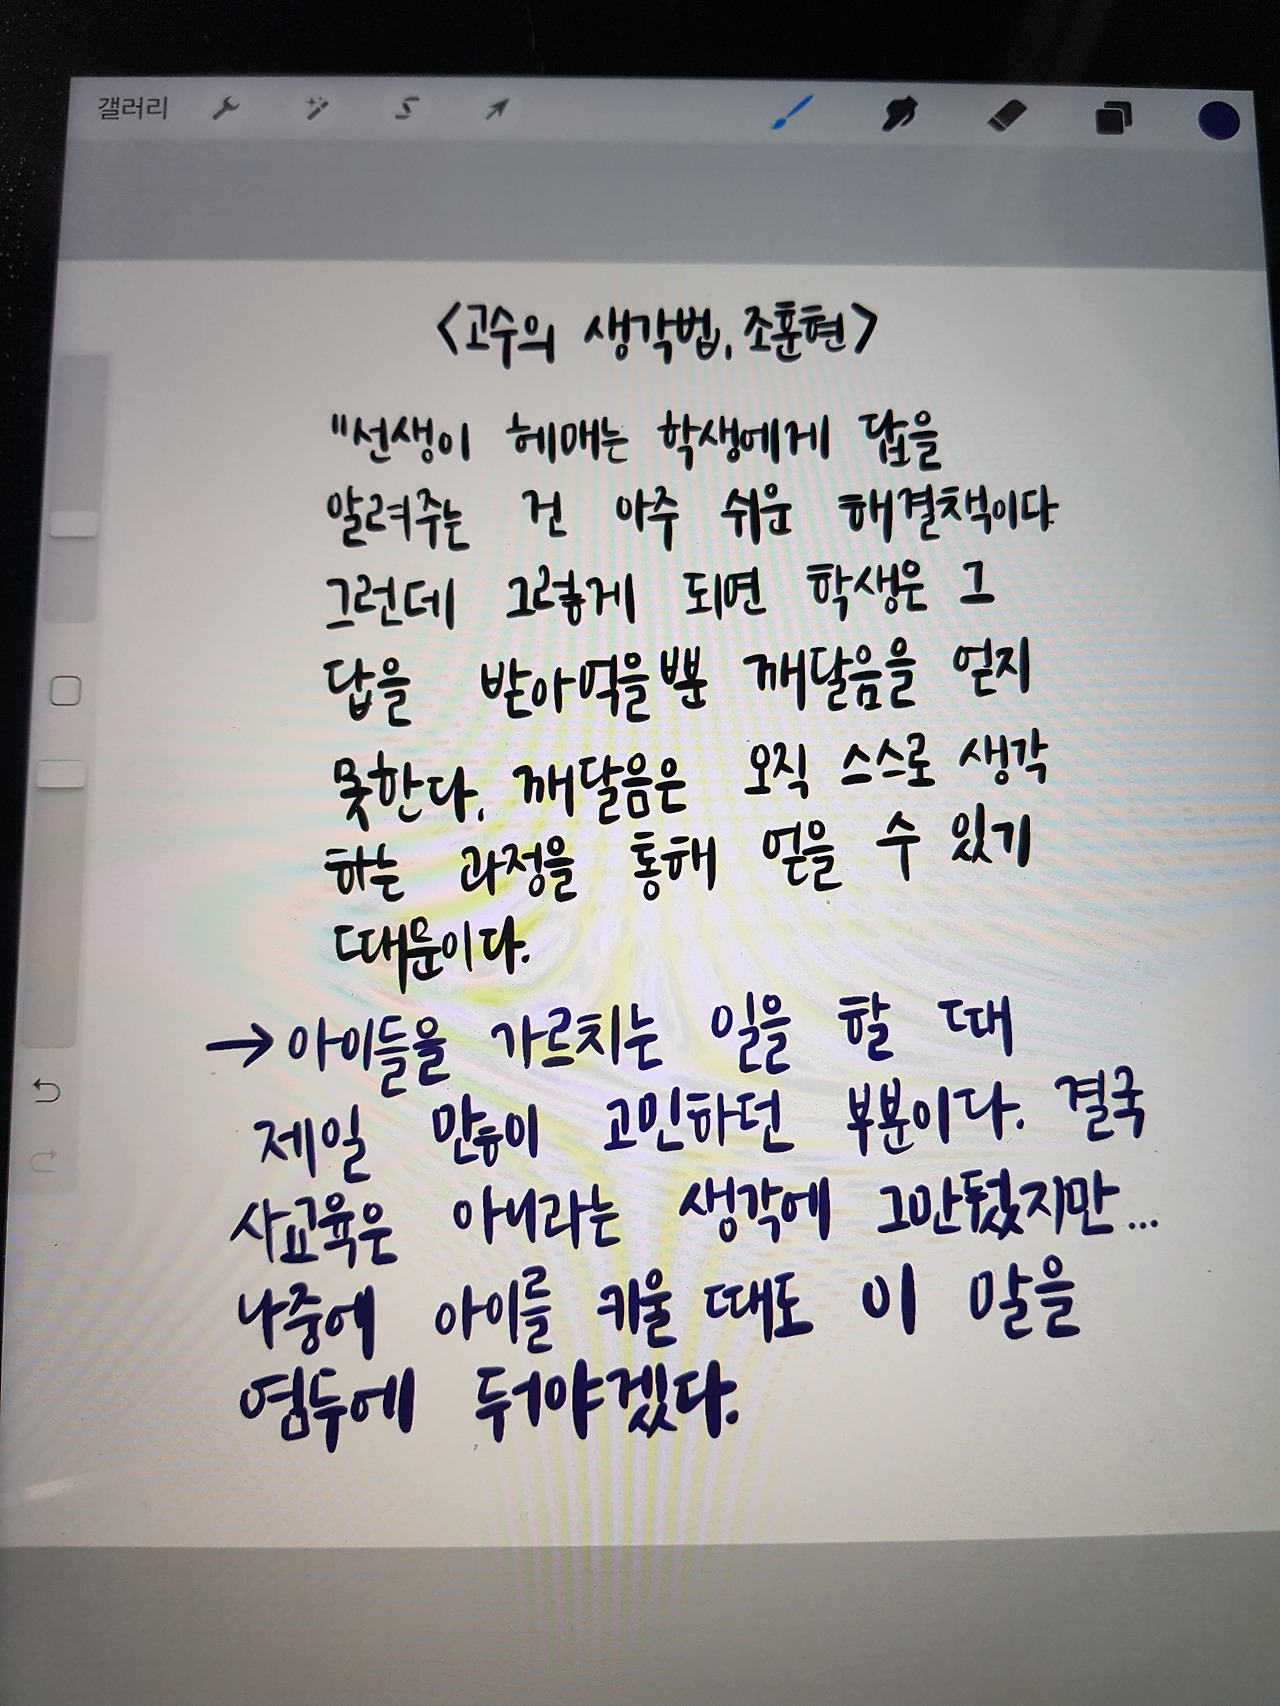 갤러리
<고수의 생각법, 조훈현>
"선생이 헤매는 학생에게 답을
알려주는 건 아주 쉬운 해결책이다
그런데 그렇게 되면 학생은 그
답을 받아먹을뿐 깨달음을 얻지
못한다. 깨달음은 오직 스스로 생각
하는 과정을 통해 얻을 수 있기
때문이다.
→아이들을 가르치는 일을 할 때
제일 많이 고민하던 부분이다. 결국
사교육은 아니라는 생각에 그만뒀지만...
나중에 아이를 키울 때도 이 말을
염두에 둬야겠다.